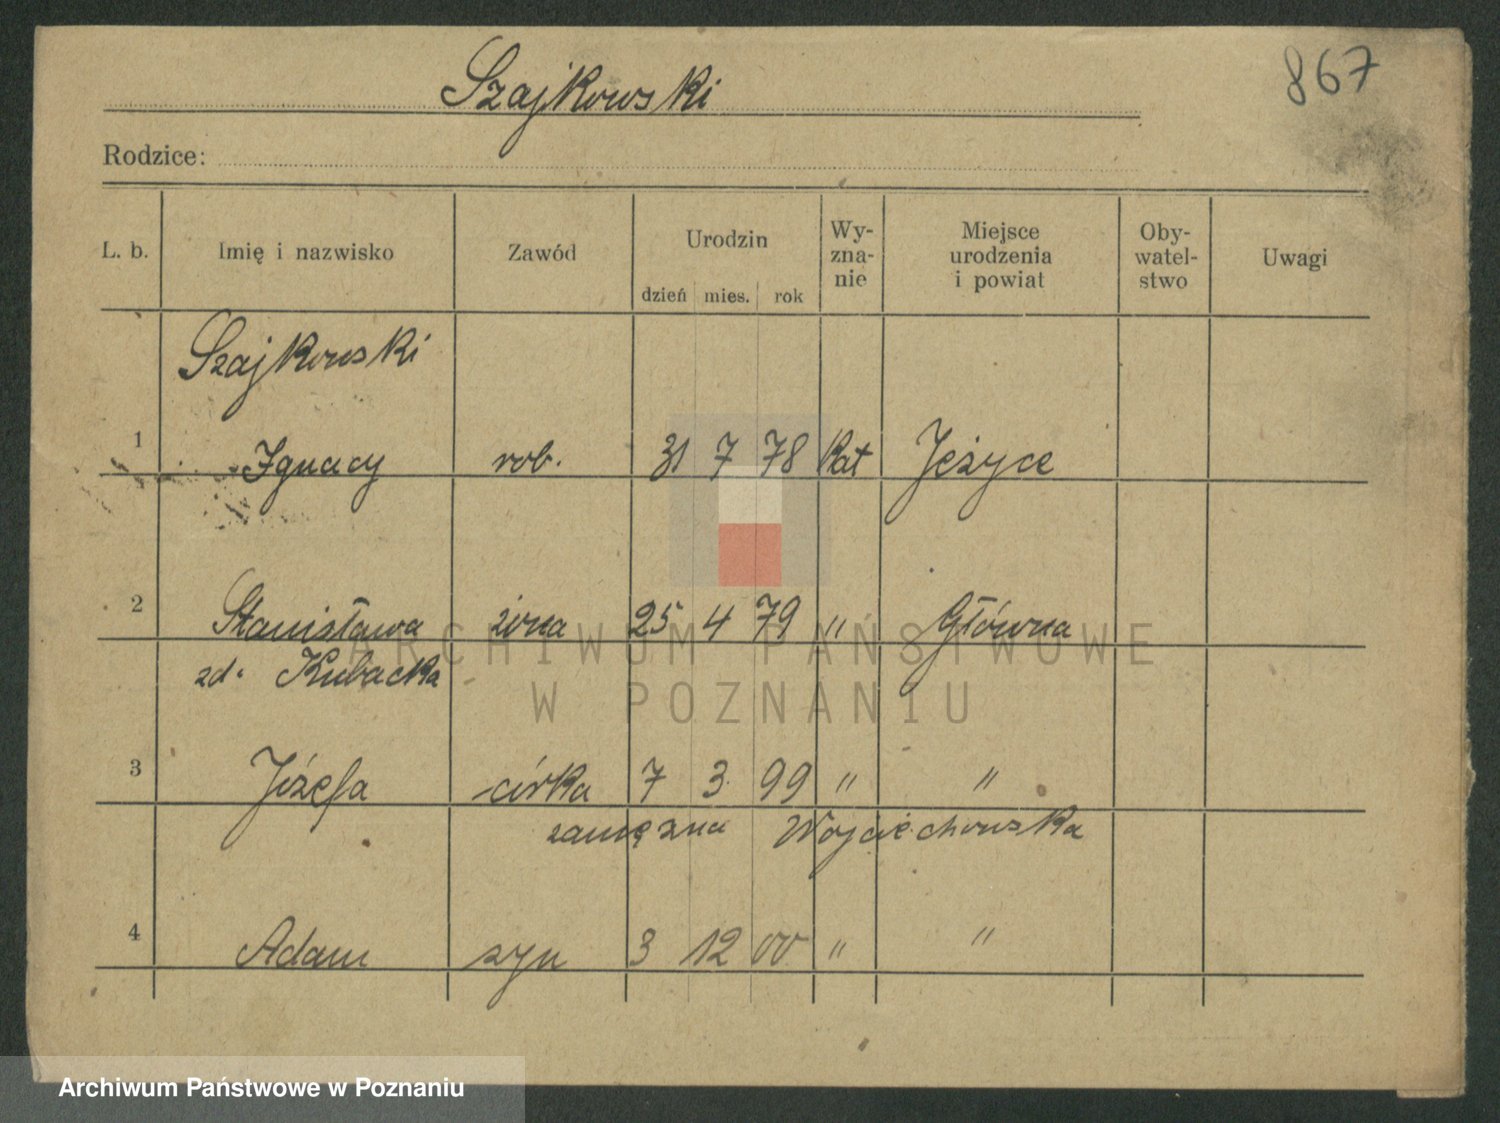 867
Szajkowski
Rodzice:
L. b. Imię i nazwisko Zawód Urodzin dzień mies. rok Wy-zna-nie Miejsce urodzenia i powiat Oby-watel-stwo Uwagi
Szajkowski
1 Ignacy rob. 31 7 78 kat Jeżyce
2 Stanisława żona 25 4 79 " Główna
zd. Kubacka
3 Józefa córka 7 3 99 " "
zamężna Wojciechowska
4 Adam syn 3 12 00 " "
ARCHIWUM PAŃSTWOWE
W POZNANIU
Archiwum Państwowe w Poznaniu